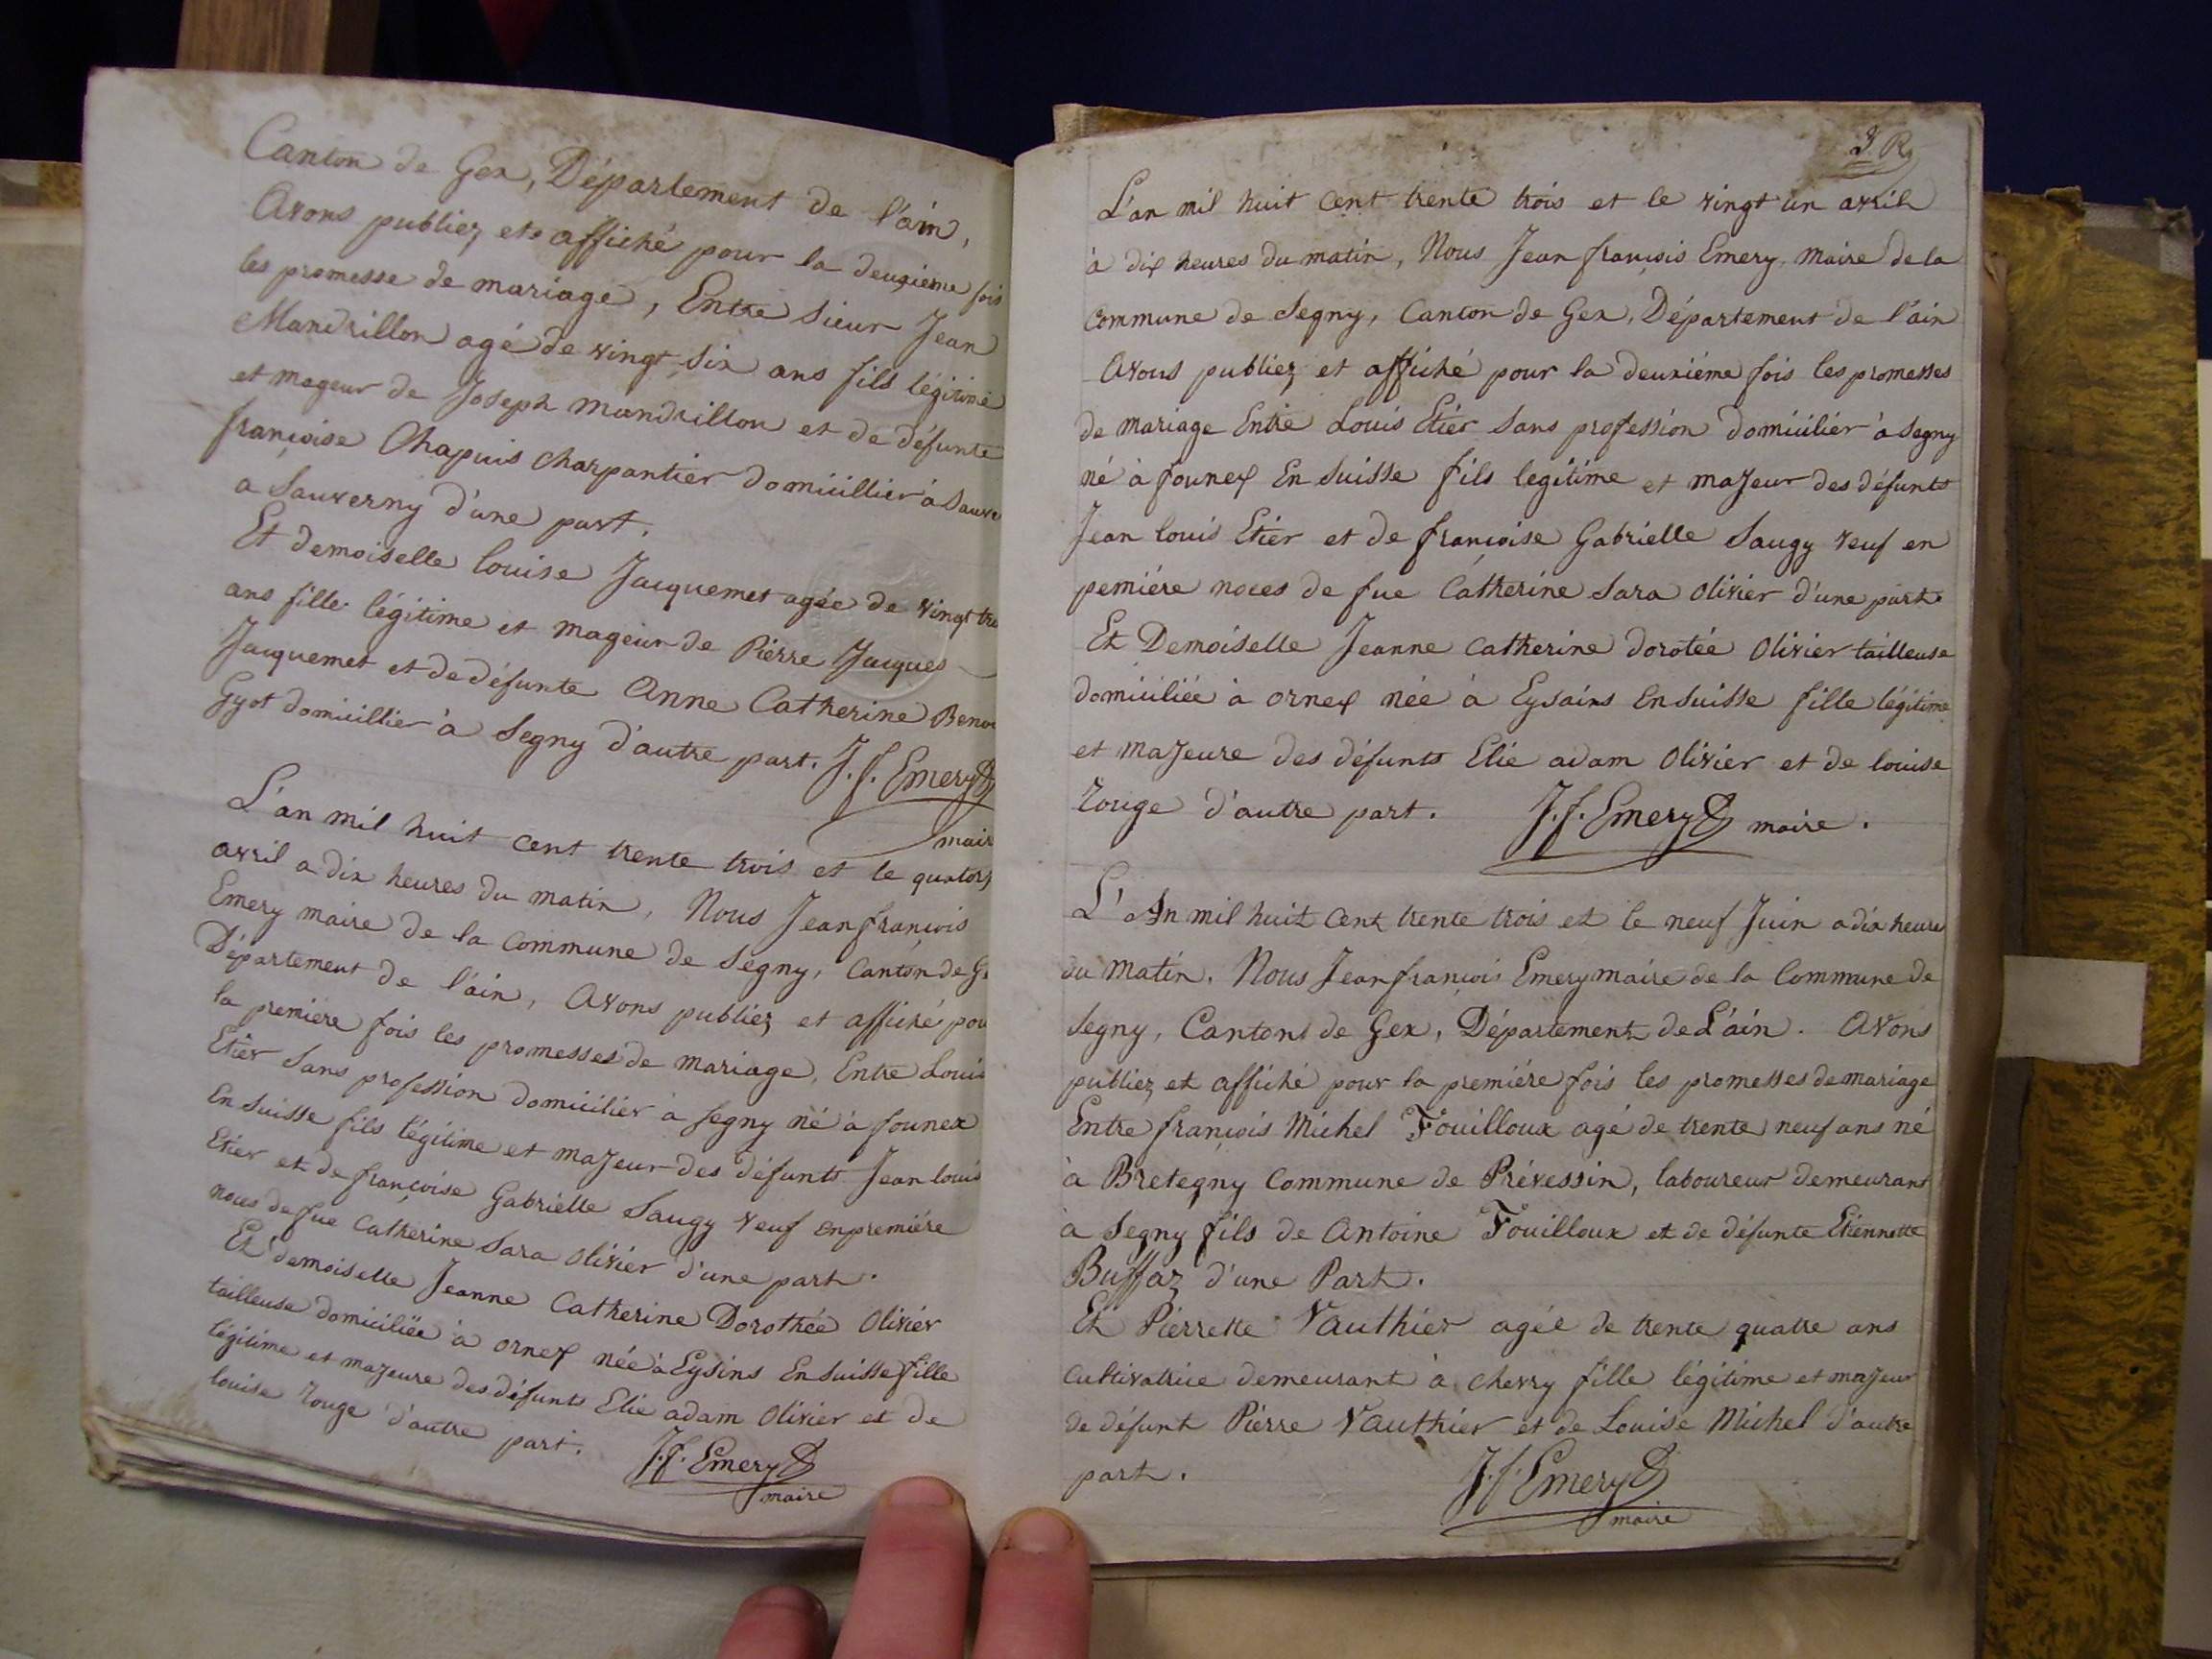 Canton de Gex, Département de l'ain,
Avons publiez et affiché pour la deuxième fois
les promesse de mariage, Entre Sieur Jean
Mandrillon agé de vingt Six ans fils légitime
et mageur de Joseph mandrillon et de défunte
françoise Chapuis charpantier domicillier à Sauve
a Sauverny d'une part.
Et demoiselle louise Jacquemet agée de vingt
ans fille légitime et mageur de Pierre Jacques
Jacquemet et de défunte Anne Catherine
Gyot domicillier à Segny d'autre part. J. f. Emery
maire
L'an mil huit cent trente trois et le quatorz
avril a dix heures du matin, Nous Jean françois
Emery maire de la Commune de Segny, Canton de G
Département de l'ain, Avons publiez et affiché pou
la premiere fois les promesses de mariage, Entre Louis
Etier Sans profession domicilier à Segny né à founex
En Suisse fils légitime et majeur des défunts Jean louis
Etier et de françoise Gabrielle Saugy veuf en premiére
noces de fue Catherine Sara Olivier d'une part.
Et demoiselle Jeanne Catherine Dorothée Olivier
tailleuse domiciliée à ornex née à Eysins En Suisse fille
légitime et majeure des défunts Elie adam Olivier et de
louise rouge d'autre part. J. f. Emery
maire
L'an mil huit cent trente trois et le vingt un avril
à dix heures du matin, Nous Jean françois Emery maire de la
Commune de Segny, Canton de Gex, Département de l'ain
Avons publiez et affiché pour la deuxiéme fois les promesses
de mariage Entre Louis Etier Sans profession domicilier à Segny
né à founex En Suisse fils legitime et majeur des défunts
Jean louis Etier et de françoise Gabrielle Saugy veuf en
pemiére noces de fue Catherine Sara Olivier d'une part.
Et Demoiselle Jeanne Catherine dorotée Olivier tailleuse
domiciliée à ornex née à Eysains En Suisse fille légitime
et majeure des défunts Elie adam Olivier et de louise
rouge d'autre part. J. f. Emery maire.
L'An mil huit cent trente trois et le neuf Juin a dix heures
du matin. Nous Jean françois Emery maire de la Commune de
Segny, Canton de Gex, Département de L'ain. Avons
publiez et affiché pour la premiére fois les promesses de mariage
Entre françois Michel Fouilloux agé de trente neuf ans né
à Bretegny Commune de Prévessin, laboureur demeurant
à Segny fils de Antoine Fouilloux et de défunte Etiennette
Buffaz d'une Part.
Et Pierrette Vauthier agée de trente quatre ans
Cultivatrice demeurant à chevry fille légitime et majeur
de défunt Pierre Vauthier et de Louise Michel d'autre
part. J. f. Emery
maire